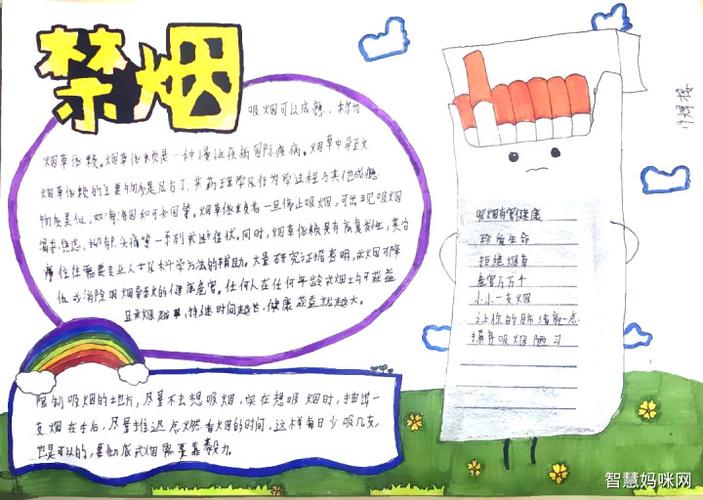 禁烟
吸烟可以成瘾,称为
烟草依赖。烟草依赖是一种慢性疾病国际疾病。烟草中导致
烟草依赖的主要物质是尼古丁,其药理学及行为学过程与其他成瘾
物质类似,如海洛因和可卡因等。烟草依赖者一旦停止吸烟,可出现吸烟
渴求、焦虑、抑郁、头痛等一系列戒断症状。同时,烟草依赖具有高复发性,
往往需要专业人士及科学方法的辅助。大量研究证据表明,戒烟可降
低或消除吸烟导致的健康危害。任何人在任何年龄戒烟均可获益
且戒烟越早,持续时间越长,健康获益就越大。
限制吸烟的地方,尽量不去想吸烟,误在想吸烟时,抽出一
支烟在手后,尽量推迟点燃香烟的时间,这样每日少吸几支
也是可以的,要知戒烟需要靠毅力。
吸烟有害健康
珍爱生命
拒绝烟草
危害万万千
小小一支烟
让你的肺清新一点
摒弃吸烟陋习
智慧妈咪网